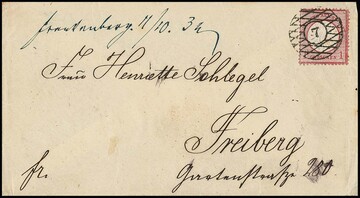 Frankenberg 11/10. 32
Frau Henriette Schlegel
Freiberg
fr.
Gartenstraße 280